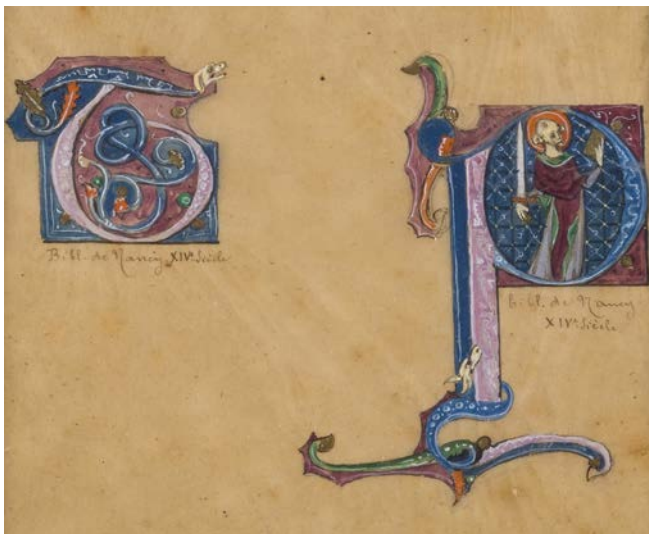 Bibl. de Nancy XIVe Siècle
bibl. de Nancy
XIVe Siècle